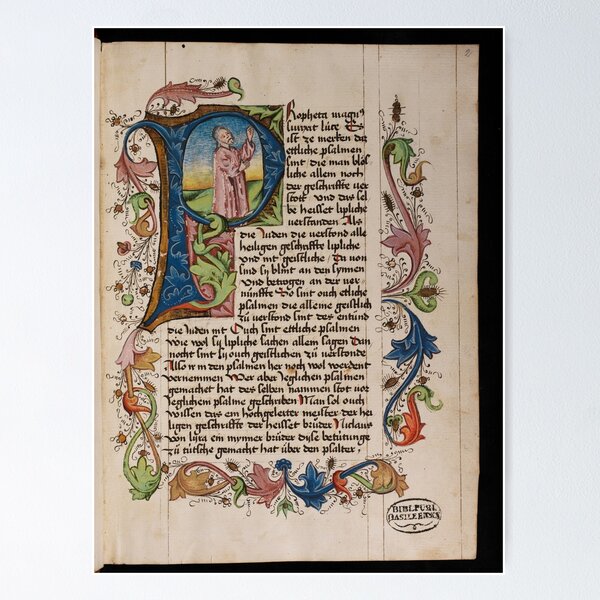 2
Propheta magnus
surrexit luce Es
ist ze merken daz
ettliche psalmen
sint die man blös
liche allem noch
der geschriffte ver
stott vnd das sel
be heisset lipliche
verstanden Als
die Juden die verstond alle
heiligen geschriffte lipliche
vnd nit geistliche / Da von
sind sy blint an den synnen
vnd betrogen an der ver-
nünffte So sint ouch etliche
psalmen die alleine geistlich
zü verstond sint des entünd
die Juden nit Ouch sint ettliche psalmen
wie wol sy lipliche sachen allem sagen Dan
nocht sint sy ouch geistlichen zü verstonde
Also ir in den psalmen her noch wol werdent
vernemmen Wer aber jeglichen psalmen
gemachet hat des selben nammen stot vor
jeglichem psalme geschriben Man sol ouch
wissen das ein hochgelerter meister der hei
ligen geschrifft der heisset brüder Niclaus
von lyra ein mynner brüder dise betütunge
zü tütsche gemacht hat über den psalter
BIBL PUBL
BASILEENSIS